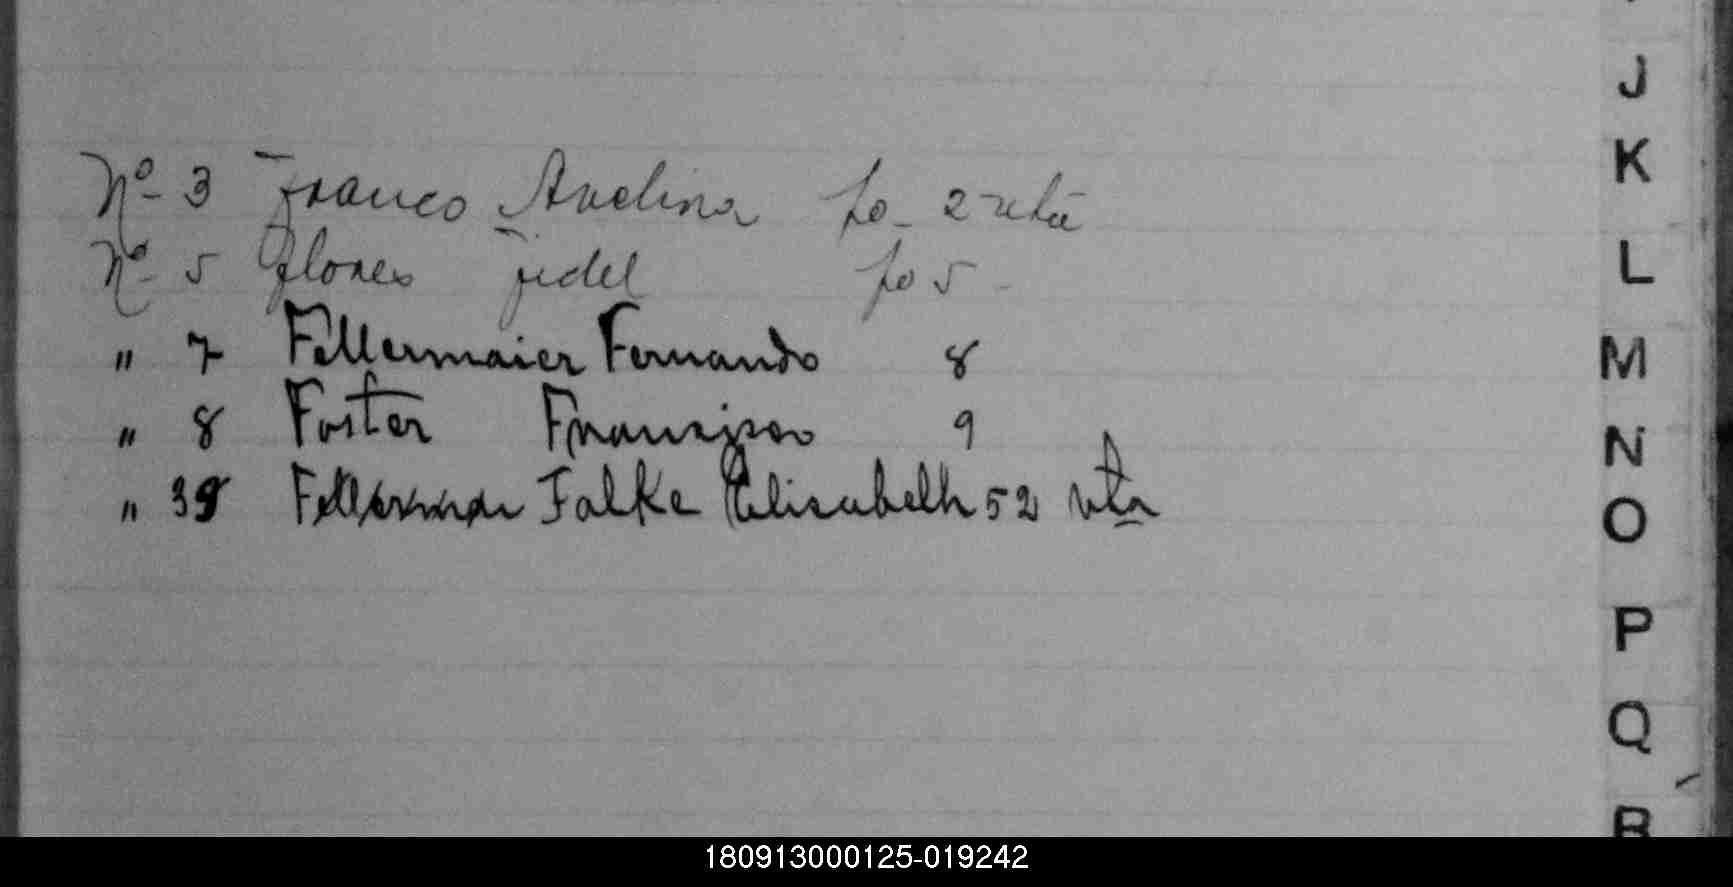 Nº 3 Franco Avelina fo 2 vta
Nº 5 Flores Fidel fo 5
" 7 Fellermaier Fernando 8
" 8 Foster Francisco 9
" 39 Fellerman Falke Elisabeth 52 vta
J
K
L
M
N
O
P
Q
R
180913000125-019242